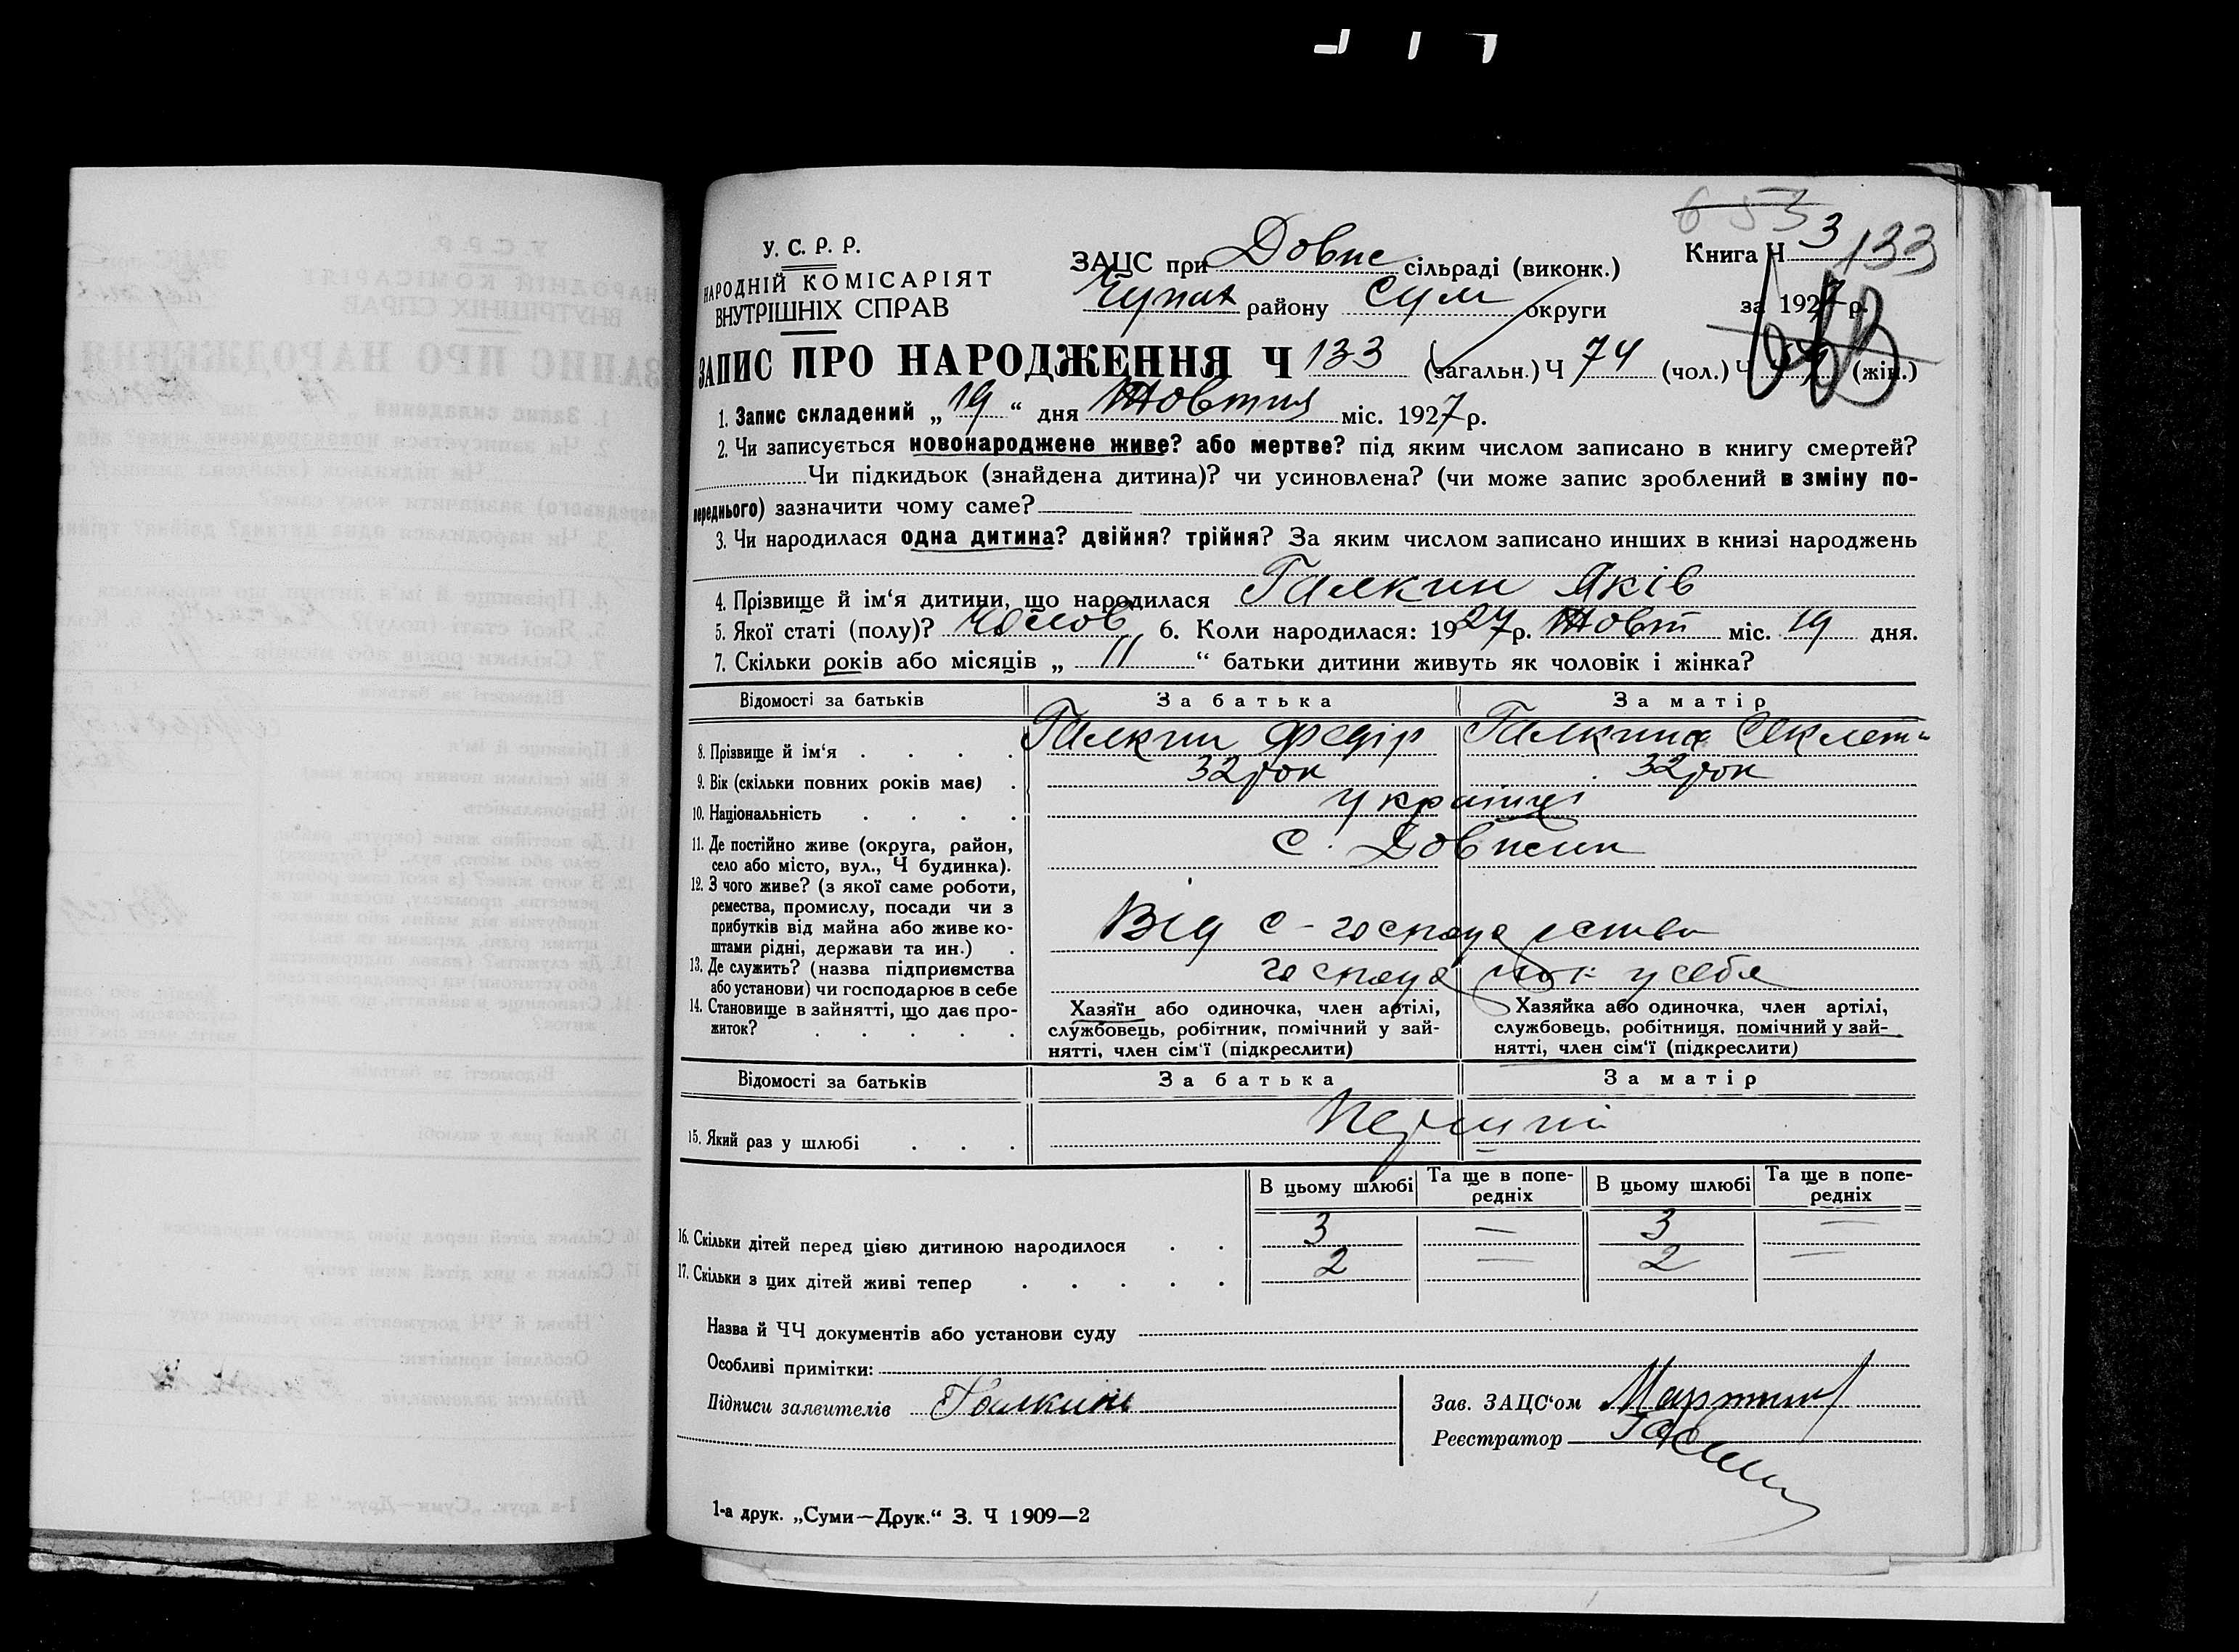 У. С. Р. Р.
НАРОДНІЙ КОМІСАРІЯТ
ВНУТРІШНІХ СПРАВ
ЗАЦС при Довже сільраді (виконк.)
Чупах району Сум округи
653
Книга Ч 3 133
за 1927 р.
ЗАПИС ПРО НАРОДЖЕННЯ Ч 133 (загальн.) Ч 74 (чол.) Ч (жін.)
1. Запис складений „ 19 “ дня Жовтня міс. 1927 р.
2. Чи записується новонароджене живе? або мертве? під яким числом записано в книгу смертей?
Чи підкидьок (знайдена дитина)? чи усиновлена? (чи може запис зроблений в зміну по-
переднього) зазначити чому саме?
3. Чи народилася одна дитина? двійня? трійня? За яким числом записано инших в книзі народжень
4. Прізвище й ім‘я дитини, що народилася Галкин Яків
5. Якої статі (полу)? Чолов 6. Коли народилася: 1927 р. Жовт міс. 19 дня.
7. Скільки років або місяців „ 11 “ батьки дитини живуть як чоловік і жінка?
Відомості за батьків За батька За матір
8. Прізвище й ім‘я . . . . Галкин Федір Галкина Секлет
9. Вік (скільки повних років має) . 32 рок 32 рок
10. Національність . . . . українці
11. Де постійно живе (округа, район,
село або місто, вул., Ч будинка). с. Довжик
12. З чого живе? (з якої саме роботи,
ремества, промислу, посади чи з
прибутків від майна або живе ко-
штами рідні, держави та ин.) . Від с-господарства
13. Де служить? (назва підприємства
або установи) чи господарює в себе господ у себе
14. Становище в зайнятті, що дає про-
житок? . . . . .
Хазяїн або одиночка, член артілі,
службовець, робітник, помічний у зай-
нятті, член сім‘ї (підкреслити)
Хазяйка або одиночка, член артілі,
службовець, робітниця, помічний у зай-
нятті, член сім‘ї (підкреслити)
Відомості за батьків За батька За матір
15. Який раз у шлюбі . . . Перший
В цьому шлюбі Та ще в попе-
редніх В цьому шлюбі Та ще в попе-
редніх
16. Скільки дітей перед цією дитиною народилося . . 3 — 3 —
17. Скільки з цих дітей живі тепер . . . . . 2 — 2 —
Назва й ЧЧ документів або установи суду
Особливі примітки:
Підписи заявителів Галкин
Зав. ЗАЦС‘ом
Реєстратор
1-а друк. „Суми—Друк.“ З. Ч 1909—2